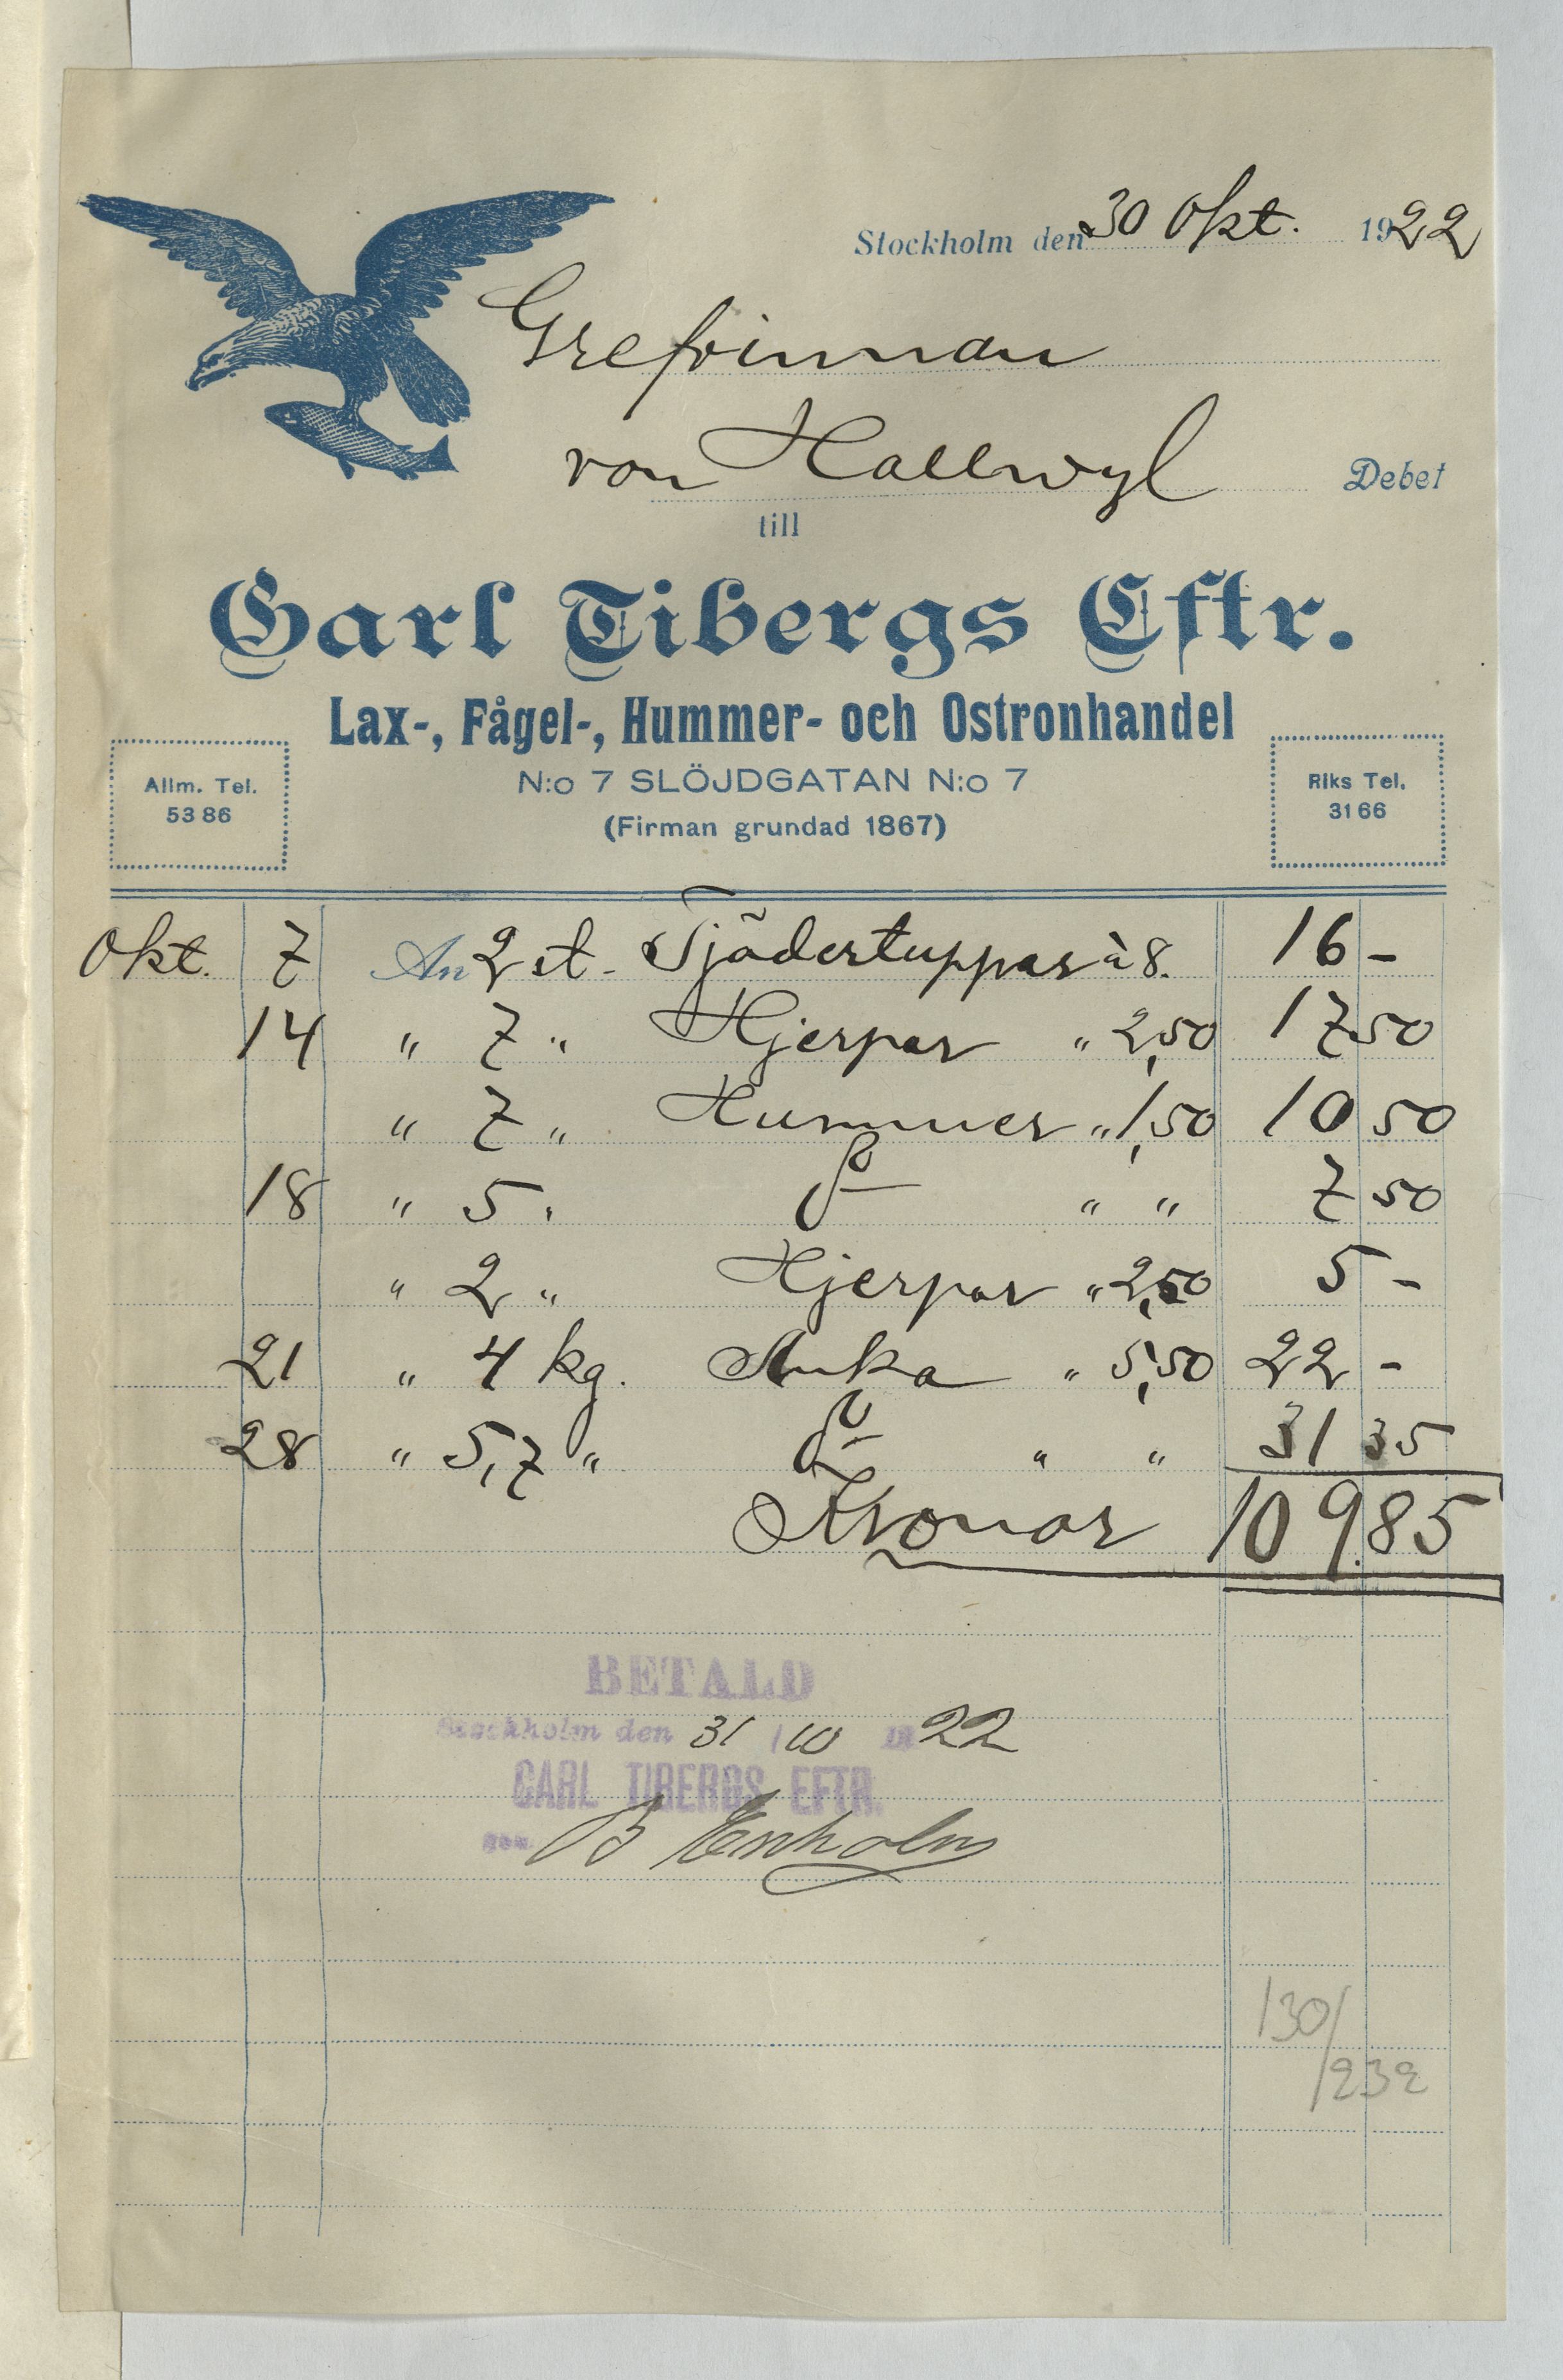 Stockholm den 30 Okt. 1922
Grefvinnan
von Hallwyl Debet
till
Carl Tibergs Eftr.
Lax-, Fågel-, Hummer- och Ostronhandel
N:o 7 SLÖJDGATAN N:o 7
(Firman grundad 1867)
Allm. Tel.
53 86
Riks Tel.
31 66
Okt. 7 An 2 st. Tjädertuppar à 8. 16 –
14 " 7 " Hjerpar " 2,50 17 50
" 7 " Hummer " 1,50 10 50
18 " 5 " " " 7 50
" 2 " Hjerpar " 2,50 5 –
21 " 4 kg. Anka " 5,50 22 –
28 " 5,7 " " " 31 35
Kronor 109.85
BETALD
Stockholm den 31/10 1922
CARL TIBERGS EFTR.
B Enholm
130/
/232